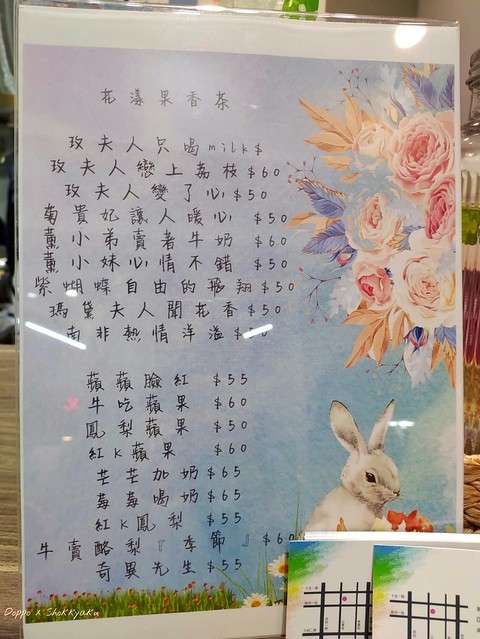 花漾果香茶
玫夫人只喝milk$
玫夫人戀上荔枝$60
玫夫人變了心$50
菊貴妃讓人暖心$50
薰小弟賣著牛奶$60
薰小妹心情不錯$50
紫蝴蝶自由的飛翔$50
瑪黛夫人聞花香$50
南非熱情洋溢$50
蘋蘋臉紅$55
牛吃蘋果$60
鳳梨蘋果$50
紅K蘋果$60
芒芒加奶$65
莓莓喝奶$65
紅K鳳梨$55
牛賣酪梨『季節』$60
奇異先生$55
Doppo x Shokkyaku